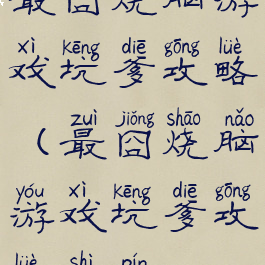 最囧烧脑游
xì kēng diē gōng lüè
戏坑爹攻略
zuì jiǒng shāo nǎo
(最囧烧脑
yóu xì kēng diē gōng
游戏坑爹攻
lüè shì pín